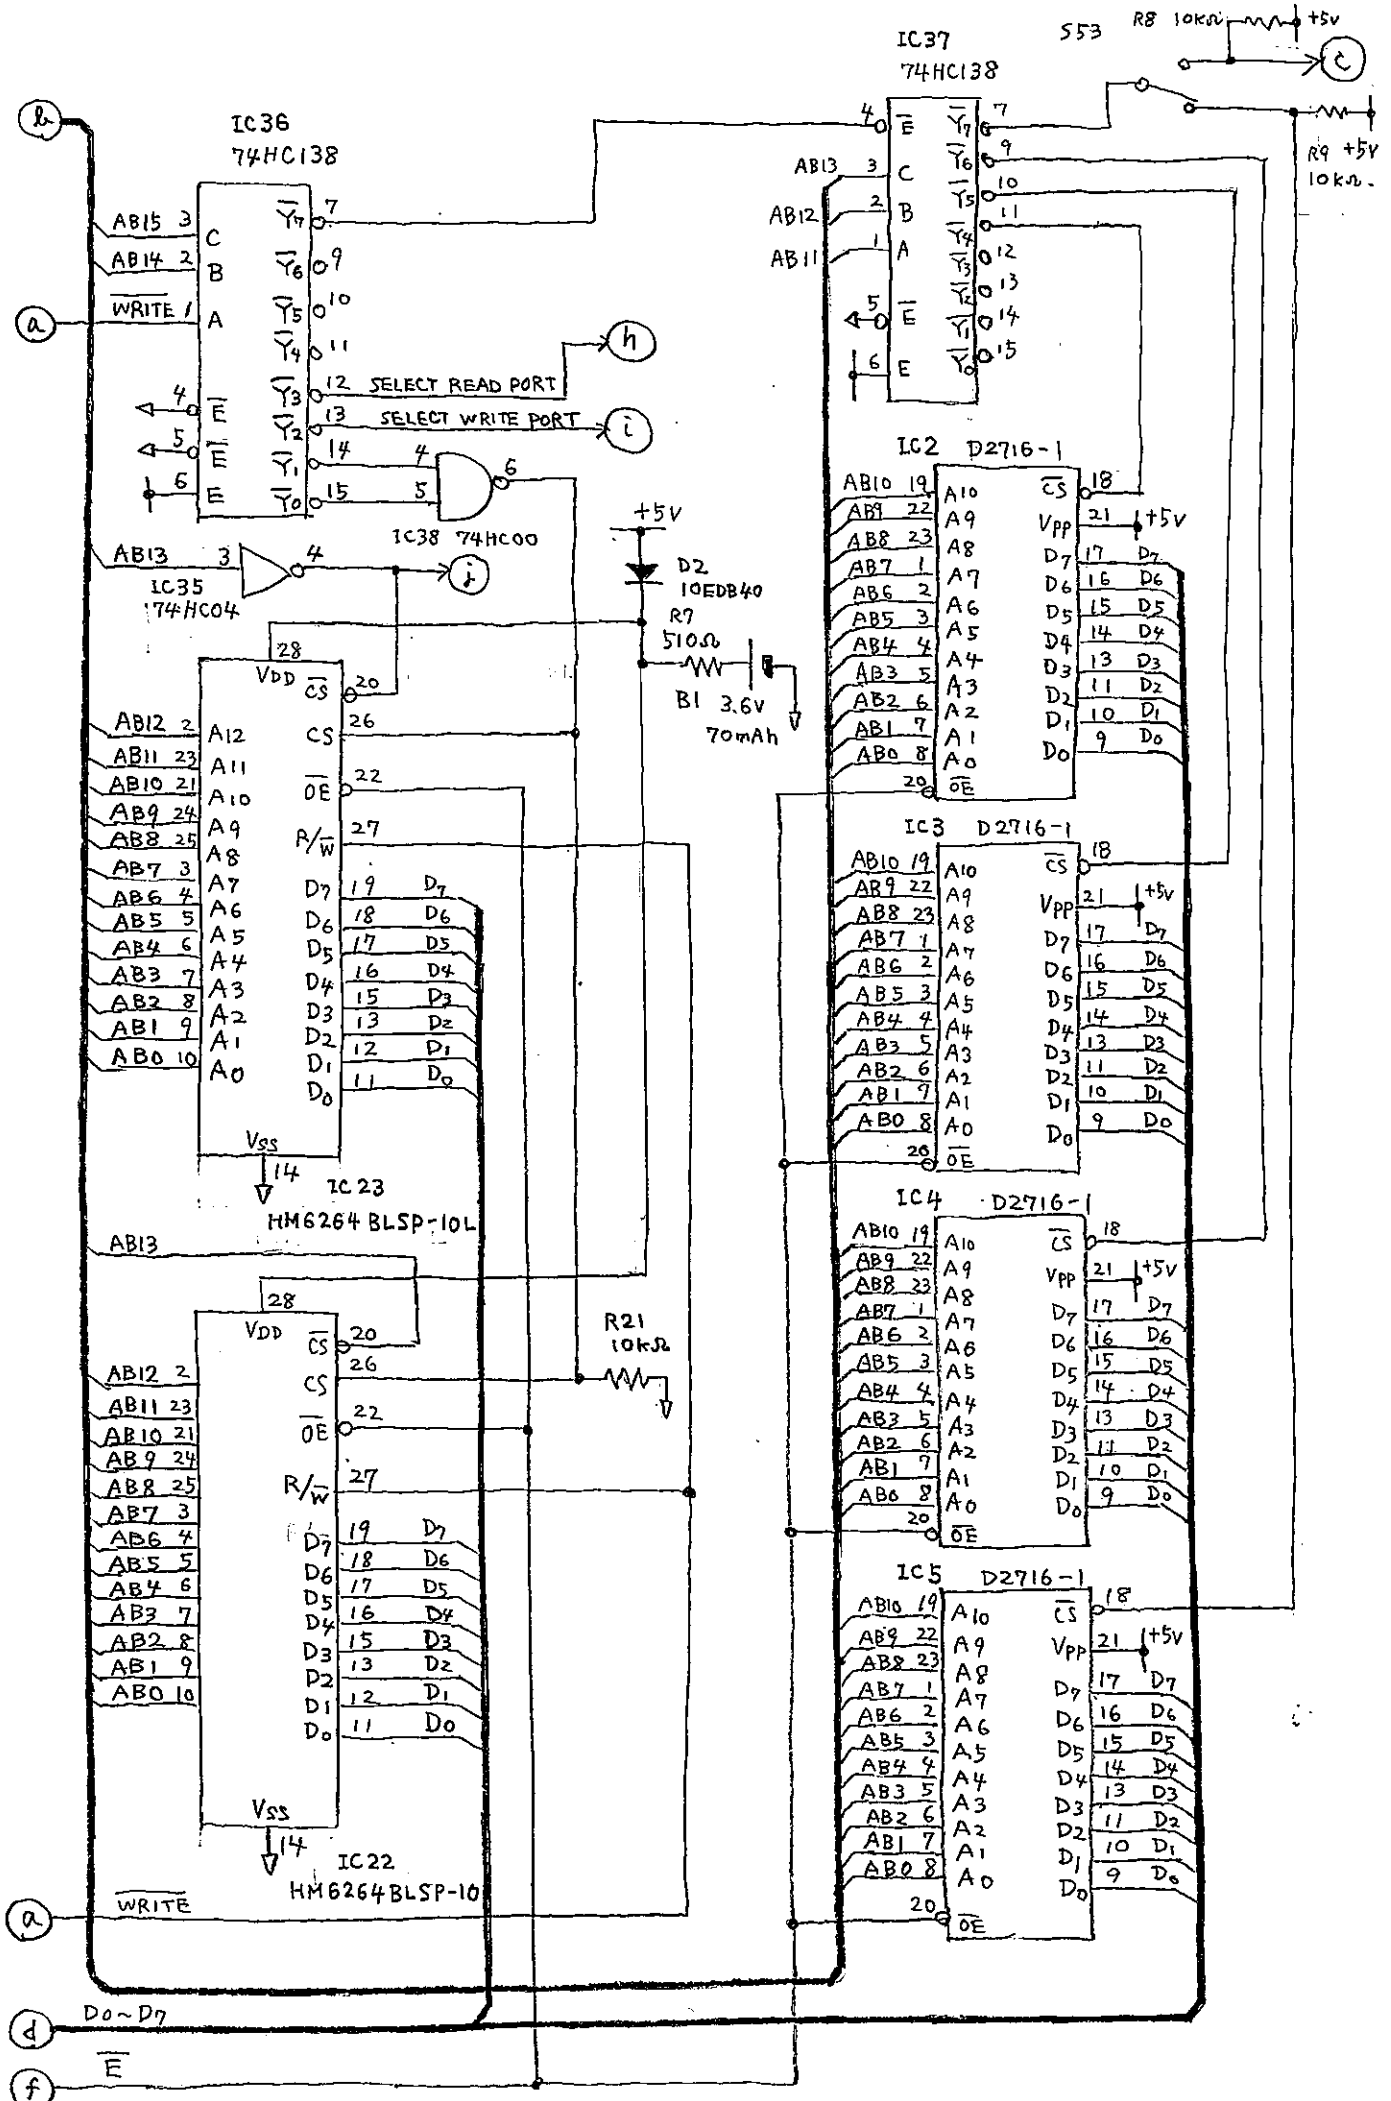 IC37
74HC138
S53
R8 10KΩ
+5V
c
b
IC36
74HC138
4 E̅ Y̅7 7
Y̅6 9
R9 +5V
10KΩ
AB13 3 C
Y̅5 10
AB12 2 B
Y̅4 11
AB11 1 A
Y̅3 12
Y̅2 13
5 E̅
Y̅1 14
6 E
Y̅0 15
Y̅7 7
AB15 3 C
AB14 2 B
Y̅6 9
a
W̅R̅I̅T̅E̅ 1 A
Y̅5 10
Y̅4 11
Y̅3 12 SELECT READ PORT
h
4 E̅
Y̅2 13 SELECT WRITE PORT
i
5 E̅
Y̅1 14 4
6
6 E
Y̅0 15 5
IC38 74HC00
AB13 3 4
j
IC35
74HC04
+5V
D2
10EDB40
R7
510Ω
B1 3.6V
70mAh
28
VDD
C̅S̅ 20
AB12 2 A12
CS 26
AB11 23 A11
AB10 21 A10
O̅E̅ 22
AB9 24 A9
AB8 25 A8
R/W̅ 27
AB7 3 A7
AB6 4 A6
AB5 5 A5
AB4 6 A4
AB3 7 A3
AB2 8 A2
AB1 9 A1
AB0 10 A0
D7 19 D7
D6 18 D6
D5 17 D5
D4 16 D4
D3 15 D3
D2 13 D2
D1 12 D1
D0 11 D0
VSS
14
IC23
HM6264BLSP-10L
AB13
28
VDD
C̅S̅ 20
CS 26
R21
10KΩ
O̅E̅ 22
R/W̅ 27
AB12 2
AB11 23
AB10 21
AB9 24
AB8 25
AB7 3
AB6 4
AB5 5
AB4 6
AB3 7
AB2 8
AB1 9
AB0 10
D7 19 D7
D6 18 D6
D5 17 D5
D4 16 D4
D3 15 D3
D2 13 D2
D1 12 D1
D0 11 D0
VSS
14
IC22
HM6264BLSP-10
a
W̅R̅I̅T̅E̅
d
D0~D7
f
E̅
IC2 D2716-1
AB10 19 A10
AB9 22 A9
AB8 23 A8
AB7 1 A7
AB6 2 A6
AB5 3 A5
AB4 4 A4
AB3 5 A3
AB2 6 A2
AB1 7 A1
AB0 8 A0
20 O̅E̅
C̅S̅ 18
VPP 21 +5V
D7 17 D7
D6 16 D6
D5 15 D5
D4 14 D4
D3 13 D3
D2 11 D2
D1 10 D1
D0 9 D0
IC3 D2716-1
AB10 19 A10
AB9 22 A9
AB8 23 A8
AB7 1 A7
AB6 2 A6
AB5 3 A5
AB4 4 A4
AB3 5 A3
AB2 6 A2
AB1 7 A1
AB0 8 A0
20 O̅E̅
C̅S̅ 18
VPP 21 +5V
D7 17 D7
D6 16 D6
D5 15 D5
D4 14 D4
D3 13 D3
D2 11 D2
D1 10 D1
D0 9 D0
IC4 D2716-1
AB10 19 A10
AB9 22 A9
AB8 23 A8
AB7 1 A7
AB6 2 A6
AB5 3 A5
AB4 4 A4
AB3 5 A3
AB2 6 A2
AB1 7 A1
AB0 8 A0
20 O̅E̅
C̅S̅ 18
VPP 21 +5V
D7 17 D7
D6 16 D6
D5 15 D5
D4 14 D4
D3 13 D3
D2 11 D2
D1 10 D1
D0 9 D0
IC5 D2716-1
AB10 19 A10
AB9 22 A9
AB8 23 A8
AB7 1 A7
AB6 2 A6
AB5 3 A5
AB4 4 A4
AB3 5 A3
AB2 6 A2
AB1 7 A1
AB0 8 A0
20 O̅E̅
C̅S̅ 18
VPP 21 +5V
D7 17 D7
D6 16 D6
D5 15 D5
D4 14 D4
D3 13 D3
D2 11 D2
D1 10 D1
D0 9 D0